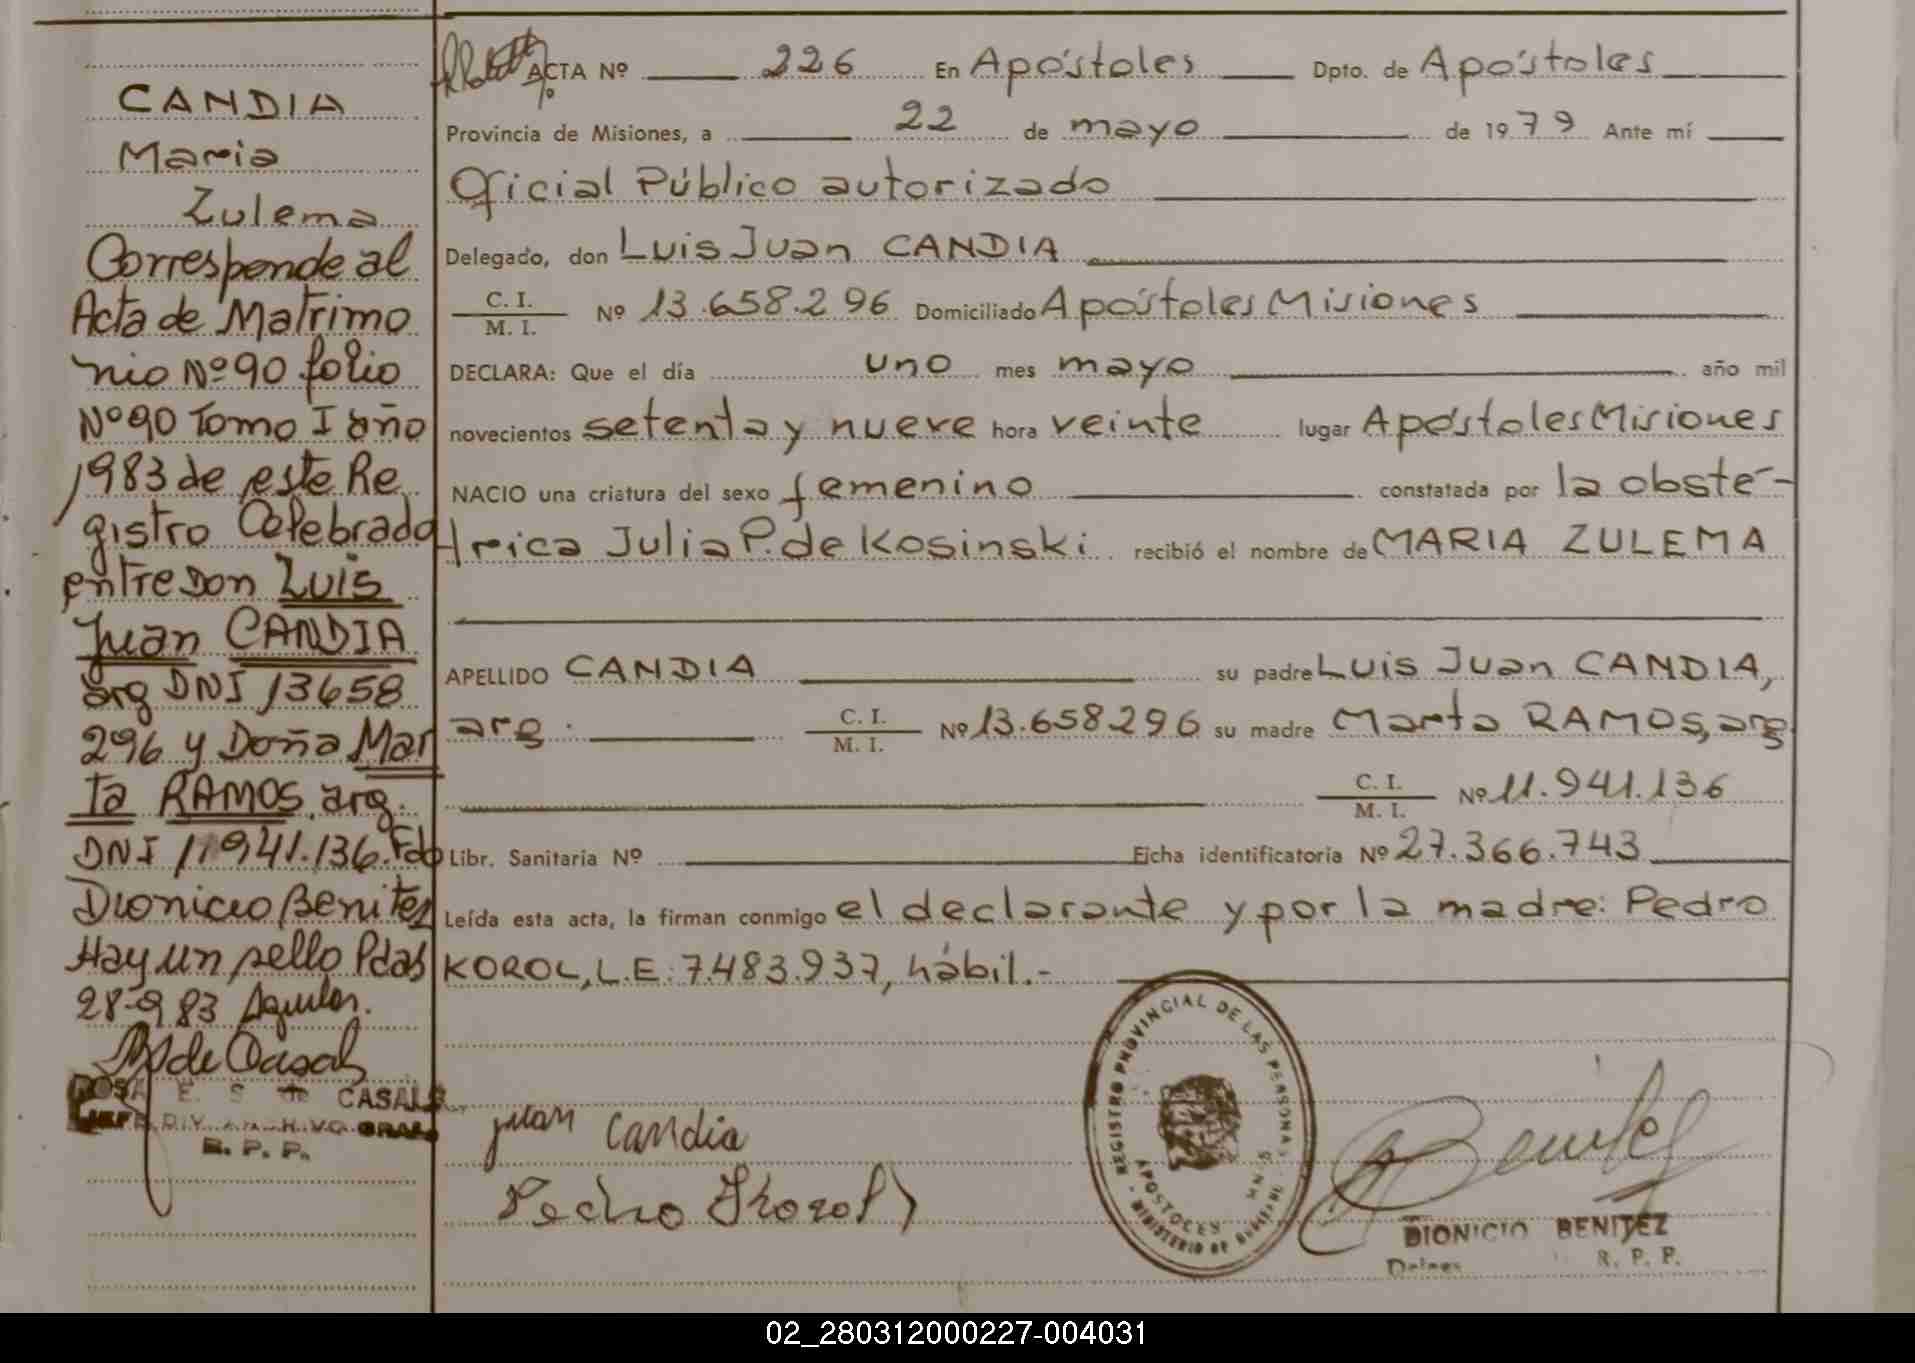 CANDIA
Maria
Zulema
Corresponde al
Acta de Matrimo
nio Nº 90 folio
Nº 90 Tomo I año
1983 de este Re
gistro Celebrado
entre Don Luis
Juan CANDIA
arg DNI 13658
296 y Doña Mar
ta RAMOS. arg.
DNI 11941.136. Fdo
Dionicio Benitez
Hay un sello Pdas
28-9 83
de Casals
ROSA E. S de CASALS
JEFE DIV. GRAL
R. P. P.
ACTA Nº 226 En Apóstoles Dpto. de Apóstoles
Provincia de Misiones, a 22 de mayo de 1979 Ante mí
Oficial Público autorizado
Delegado, don Luis Juan CANDIA
C. I.
M. I. Nº 13.658.296 Domiciliado Apóstoles Misiones
DECLARA: Que el día uno mes mayo año mil
novecientos setenta y nueve hora veinte lugar Apóstoles Misiones
NACIO una criatura del sexo femenino constatada por la obsté-
trica Julia P. de Kosinski recibió el nombre de MARIA ZULEMA
APELLIDO CANDIA su padre Luis Juan CANDIA,
arg. C. I.
M. I. Nº 13.658296 su madre Marta RAMOS, arg
C. I.
M. I. Nº 11.941.136
Libr. Sanitaria Nº Ficha identificatoria Nº 27.366.743
Leída esta acta, la firman conmigo el declarante y por la madre: Pedro
KOROL, L.E: 7.483.937, hábil.-
REGISTRO PROVINCIAL DE LAS PERSONAS
APOSTOLES
MINISTERIO DE
juan Candia
Pedro Korol
Benitez
DIONICIO BENITEZ
R. P. P.
02_280312000227-004031